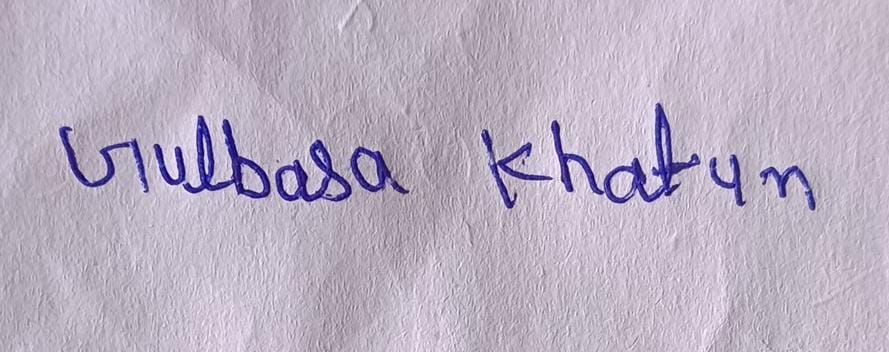 Gulbasa Khatun